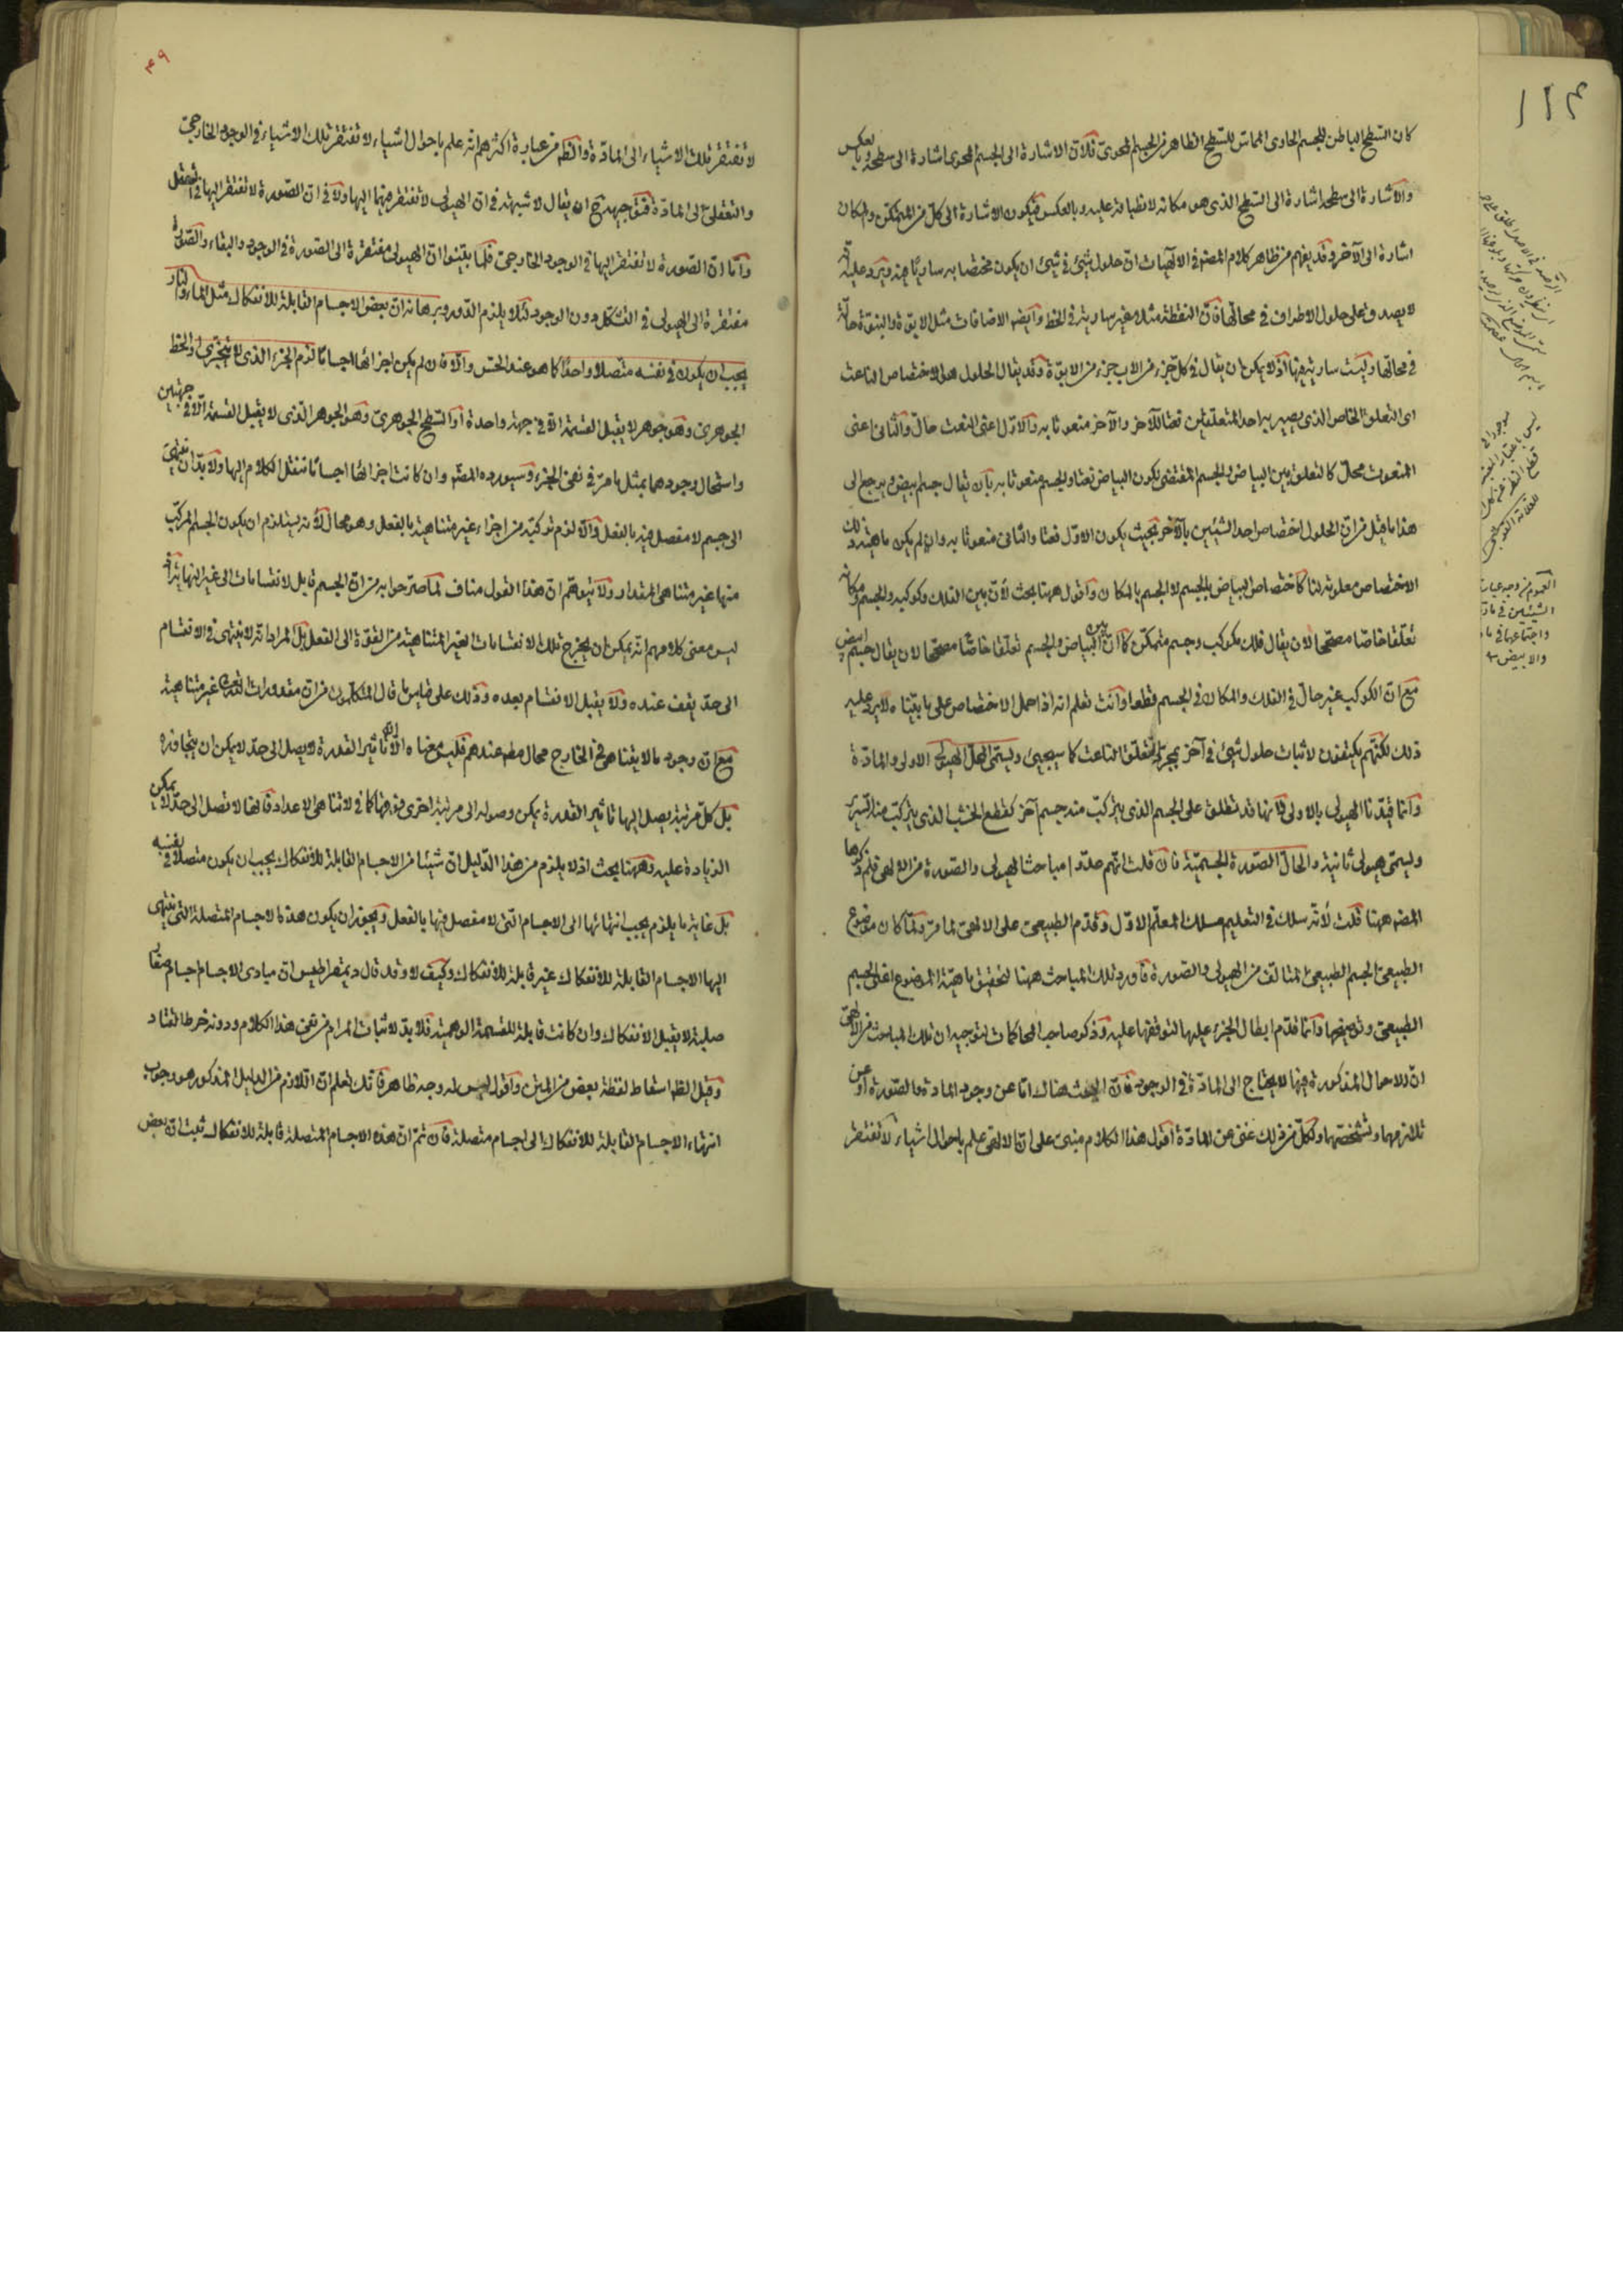 كان السطح الباطن للجسم الحاوى المماس للسطح الظاهر من الجسم المحوى فلان الاشارة الى الجسم المحوى اشارة الى سطحه وبالعكس
والاشارة الى سطحه اشارة الى السطح الذى هو مكانه لانطباقه عليه وبالعكس فيكون الاشارة الى كل من المتمكن والمكان
اشارة الى الآخر وقد يفهم من ظاهر كلام المصنف فى الالهيات ان حلول شيئ فى شيئ ان يكون مختصا به ساريا فيه ويرد عليه انه
لا يصدق على حلول الاطراف فى محالها فان النقطة مثلا غير سارية فى الخط وايضه الاضافات مثل الابوة والبنوة حالة
فى محالها وليست سارية فيها اذ لا يمكن ان يقال فى كل جزء من الاب جزء من الابوة وقد يقال الحلول هو الاختصاص الناعت
اى التعلق الخاص الذى يصير به احد المتعلقين نعتا للآخر والآخر منعوتا به والاول اعنى النعت حال والثانى اعنى
المنعوت محل كالتعلق بين البياض والجسم المقتضى لكون البياض نعتا والجسم منعوتا به بان يقال جسم ابيض ويرجع الى
هذا ما قيل من ان الحلول اختصاص احد الشيئين بالآخر بحيث يكون الاول نعتا والثانى منعوتا به وان لم يكن ماهية ذلك
الاختصاص معلومة لنا كاختصاص البياض بالجسم لا الجسم بالمكان واقول ههنا بحث لان بين الفلك وكوكبه والجسم ومكانه
تعلقا خاصا مصححا لان يقال فلك مكوكب وجسم متمكن كما ان بين البياض والجسم تعلقا خاصا مصححا لان يقال جسم ابيض
مع ان الكوكب غير حال فى الفلك والمكان فى الجسم قطعا وانت تعلم انه اذا حمل الاختصاص على ما بيناه لا يرد عليه
ذلك لكنهم يكتفون لاثبات حلول شيئ فى آخر بمجرد التعلق الناعت كما سيجيئ ويسمى المحل الهيولى الاولى والمادة
وانما قيدنا الهيولى بالاولى لانها قد تطلق على الجسم الذى يتركب منه جسم آخر كقطع الخشب الذى يتركب منها السرير
ويسمى هيولى ثانية والحال الصورة الجسمية فان قلت انهم عدوا مباحث الهيولى والصورة من الالهى فلم ذكرها
المصه ههنا قلت لانه سلك فى التعليم مسلك المعلم الاول وقدم الطبيعى على الالهى لما مر ولما كان موضوع
الطبيعى الجسم الطبيعى المتالف من الهيولى والصورة فاورد تلك المباحث ههنا لتحقيق ماهية الموضوع اعنى الجسم
الطبيعى وتوضيحها وانما قدم ابطال الجزء عليها لتوقفها عليه وذكر صاحب المحاكمات لتوجيه ان تلك المباحث من الالهى
ان الاحوال المذكورة فيها لا يحتاج الى المادة فى الوجود فان البحث هناك اما عن وجود المادة والصورة او عن
تلازمهما وتشخصهما ولكل من ذلك غنى عن المادة اقول هذا الكلام مبنى على ان الالهى علم باحوال اشياء لا تفتقر
لا تفتقر تلك الاشياء الى المادة والظه من عبارة اكثرهم انه علم باحوال اشياء لا تفتقر تلك الاشياء فى الوجود الخارجى
والتعقلى الى المادة ح ان يقال لا شبهة فى ان الهيولى لا تفتقر فيهما اليها ولا فى ان الصورة لا تفتقر اليها فى التعقل
واما ان الصورة لا تفتقر اليها فى الوجود الخارجى فلما بينوا ان الهيولى مفتقرة الى الصورة فى الوجود والبقاء والصورة
مفتقرة الى الهيولى فى التشكل دون الوجود لئلا يلزم الدور وبرهانه ان بعض الاجسام القابلة للانفكاك مثل الماء والنار
يجب ان يكون فى نفسه متصلا واحدا كما هو عند الحس والا فان لم يكن اجزائها اجساما لزم الجزء الذى لا يتجزى والخط
الجوهرى وهو جوهر لا يقبل القسمة الا فى جهة واحدة او السطح الجوهرى وهو الجوهر الذى لا يقبل القسمة الا فى جهتين
واستحال وجودهما بمثل ما مر فى نفى الجزء وسيورده المصه وان كانت اجزائها اجساما ننقل الكلام اليها ولا بد ان ينتهى
الى جسم لا مفصل فيه بالفعل والا لزم تركبه من اجزاء غير متناهية بالفعل وهو محال لانه يستلزم ان يكون الجسم المركب
منها غير متناهى المقدار ولا يتوهم ان هذا القول مناف لما صرحوا به من ان الجسم قابل لانقسامات الى غير النهاية اذ
ليس معنى كلامهم انه يمكن ان يخرج تلك الانقسامات الغير المتناهية من القوة الى الفعل بل المراد انه لا ينتهى فى الانقسام
الى حد يقف عنده ولا يقبل الانقسام بعده وذلك على قياس ما قال المتكلمون من ان مقدورات الله تعالى غير متناهية
مع ان وجود ما لا يتناهى فى الخارج محال مطه عندهم فليس معناه الا ان تاثير القدرة لا يصل الى حد لا يمكن ان يتجاوزه
بل كل مرتبة يصل اليها تاثير القدرة يمكن وصوله الى مرتبة اخرى فوقها كما فى لا تناهى الاعداد فانها لا تصل الى حد لا يمكن
الزيادة عليه وههنا بحث اذ لا يلزم من هذا الدليل ان شيئا من الاجسام القابلة للانفكاك يجب ان يكون متصلا فى نفسه
بل غاية ما يلزم يجب انتهائها الى الاجسام التى لا مفصل فيها بالفعل ويجوز ان يكون هذه الاجسام المتصلة التى ينتهى
اليها الاجسام القابلة للانفكاك غير قابلة للانفكاك وكيف لا وقد قال ديمقراطيس ان مبادى الاجسام اجسام صغار
صلبة لا يقبل الانفكاك وان كانت قابلة للقسمة الوهمية فلا بد لاثبات المرام من نفى هذا الكلام ودونه خرط القتاد
وقيل الظه اسقاط لفظة بعض من المتن واقول ليس له وجه ظاهر فانك تعلم ان اللازم من الدليل المذكور هو وجوب
انتهاء الاجسام القابلة للانفكاك الى اجسام متصلة فان تم ان هذه الاجسام المتصلة قابلة للانفكاك ثبت ان بعض